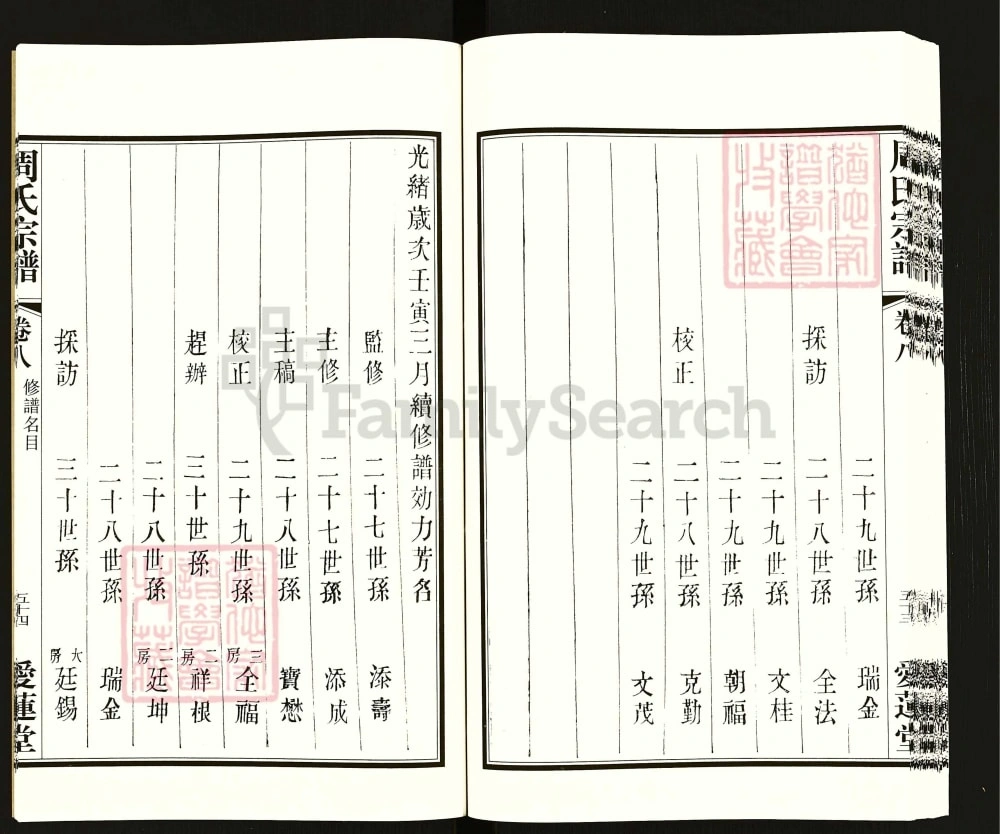 周氏宗譜 卷八 五十三 愛蓮堂
二十九世孫 瑞金
採訪 二十八世孫 全法
二十九世孫 文桂
二十九世孫 朝福
校正 二十八世孫 克勤
二十九世孫 文茂
光緒歲次壬寅三月續修譜効力芳名
監修 二十七世孫 添壽
主修 二十七世孫 添成
主稿 二十八世孫 寶懋
校正 二十九世孫 三房 全福
趕辦 三十世孫 二房 祥根
二十八世孫 二房 廷坤
二十八世孫 瑞金
採訪 三十世孫 大房 廷錫
周氏宗譜 卷八 修譜名目 五十四 愛蓮堂
猶他家譜學會收藏
猶他家譜學會收藏
FamilySearch